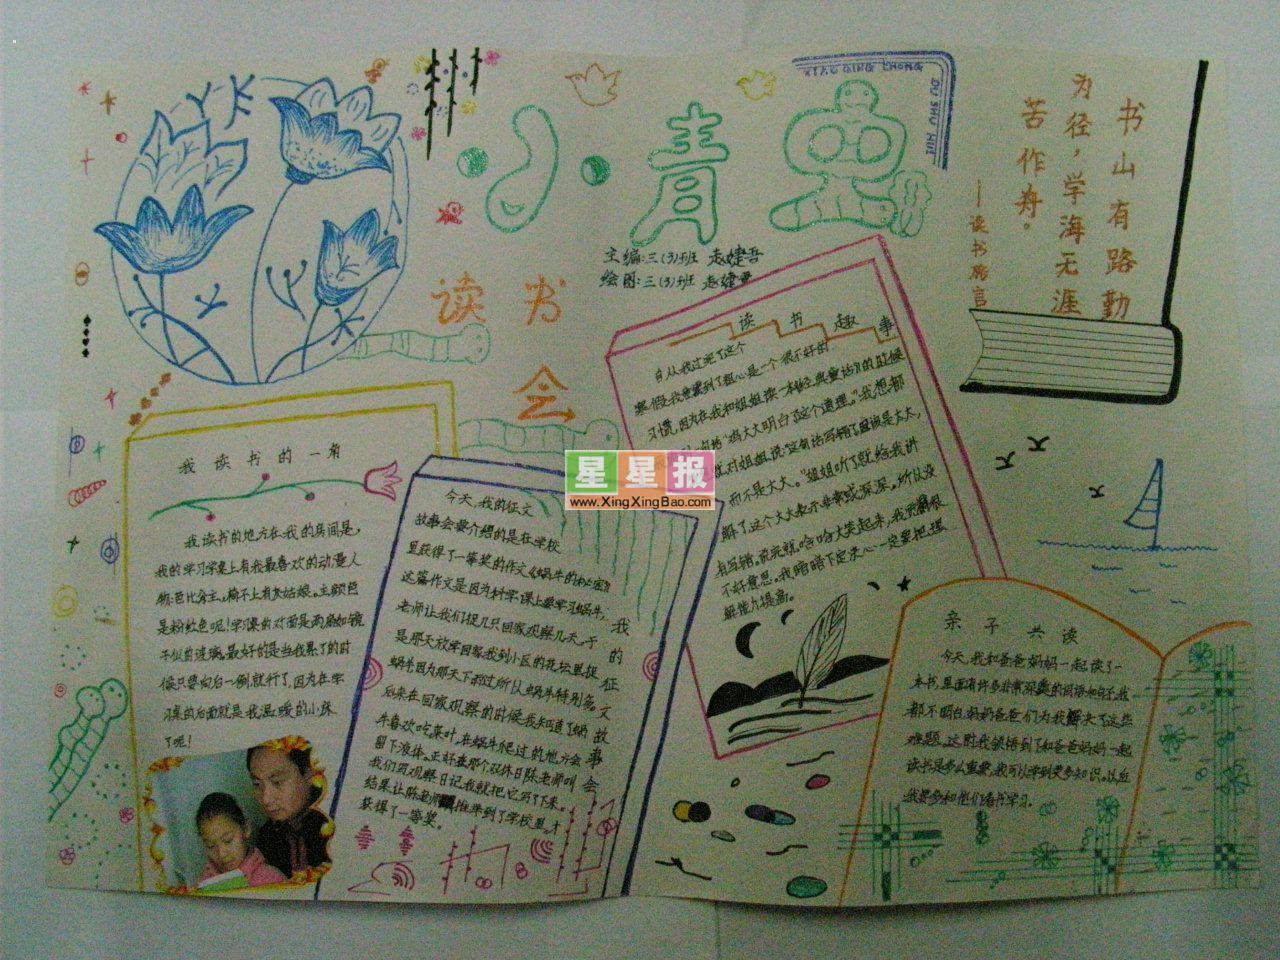 小青虫
XIAO QING CHONG
DU SHU HUI
读书
会
主编:三(3)班
绘图:三(3)班
书山有路勤
为径，学海无涯
苦作舟。
——读书格言
我读书的一角
我读书的地方在我的房间里,
我的学习学桌上有我最喜欢的动漫人
物:芭比公主,椅子上有灰姑娘。主颜色
是粉红色呢!学习桌的对面是两扇如镜
子似的玻璃。最好的是当我累了的时
候只要向后一倒,就行了,因为在学
习桌的后面就是我温暖的小床
了呢!
我的征文故事会
今天,我的征文
故事会要介绍的是在学校
里获得了一等奖的作文《蜗牛的秘密》
这篇作文是因为科学课上要学习蜗牛,
老师让我们捉几只回家观察几天,于
是那天放学回家我到小区的花坛里捉
蜗牛因为那天下雨过所以蜗牛特别多
后来在回家观察的时候我知道了蜗
牛喜欢吃菜叶,在蜗牛爬过的地方会
留下液体。正好在那个双休日陈老师叫
我们写观察日记我就把它写了下来。
结果让陈老师推举到了学校里,才
获得了一等奖。
读书趣事
自从我过完了这个
寒假,我意识到了粗心是一个很不好的
习惯,因为在我和姐姐读一本《经典童话》的时候
而不是大大。"姐姐听了就给我讲
解了,这个大大表示非常或深深。所以没
有写错。说完就哈哈大笑起来,我
不好意思。我暗暗下定决心一定要把理
解能力提高。
亲子共读
今天,我和爸爸妈妈一起读了一
本书,里面有许多非常深奥的词语和句子,我
都不明白,妈妈爸爸们为我解决了这些
难题。这时我领悟到了和爸爸妈妈一起
读书是多么重要,我可以学到更多知识。以后
我要多和他们看书学习。
星星报
www.XingXingBao.com